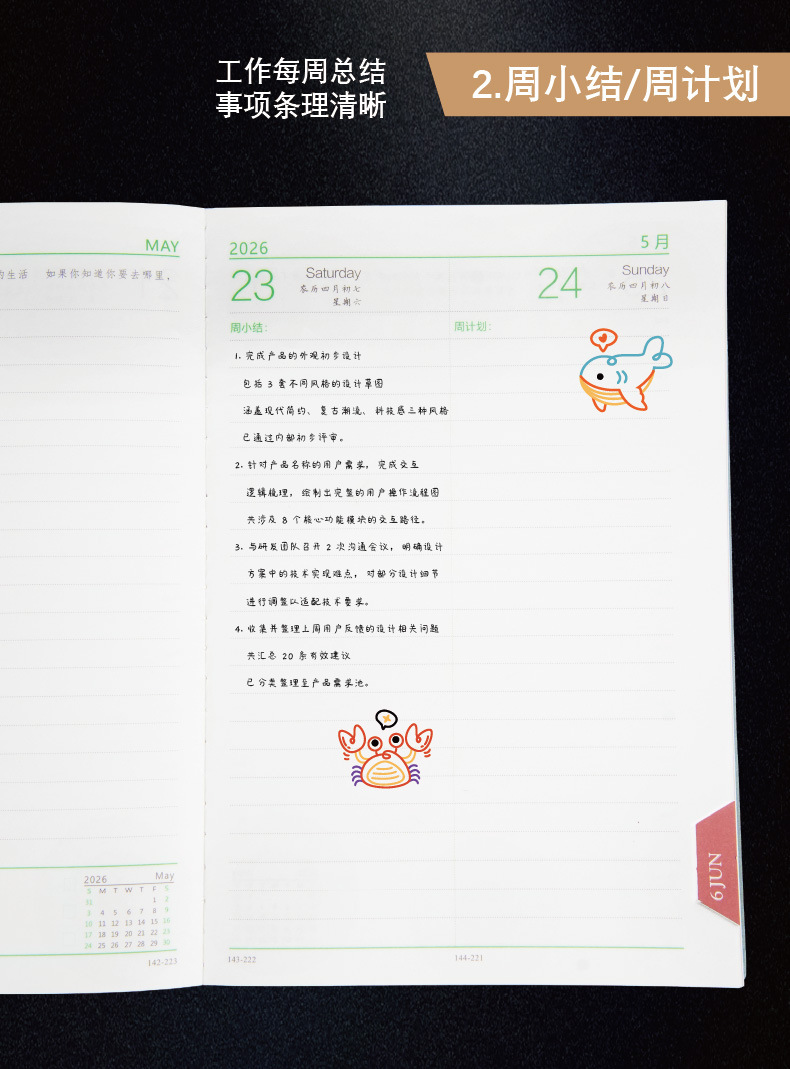 工作每周总结
事项条理清晰
2.周小结/周计划
MAY
的生活 如果你知道你要去哪里，
2026
May
S M T W T F S
31 1 2
3 4 5 6 7 8 9
10 11 12 13 14 15 16
17 18 19 20 21 22 23
24 25 26 27 28 29 30
142-223
2026
5 月
23
Saturday
农历四月初七
星期六
24
Sunday
农历四月初八
星期日
周小结：
周计划：
1. 完成产品的外观初步设计
包括 3 套不同风格的设计草图
涵盖现代简约、复古潮流、科技感三种风格
已通过内部初步评审。
2. 针对产品名称的用户需求，完成交互
逻辑梳理，绘制出完整的用户操作流程图
共涉及 8 个核心功能模块的交互路径。
3. 与研发团队召开 2 次沟通会议，明确设计
方案中的技术实现难点，对部分设计细节
进行调整以适配技术要求。
4. 收集并整理上周用户反馈的设计相关问题
共汇总 20 条有效建议
已分类整理至产品需求池。
6 JUN
143-222
144-221